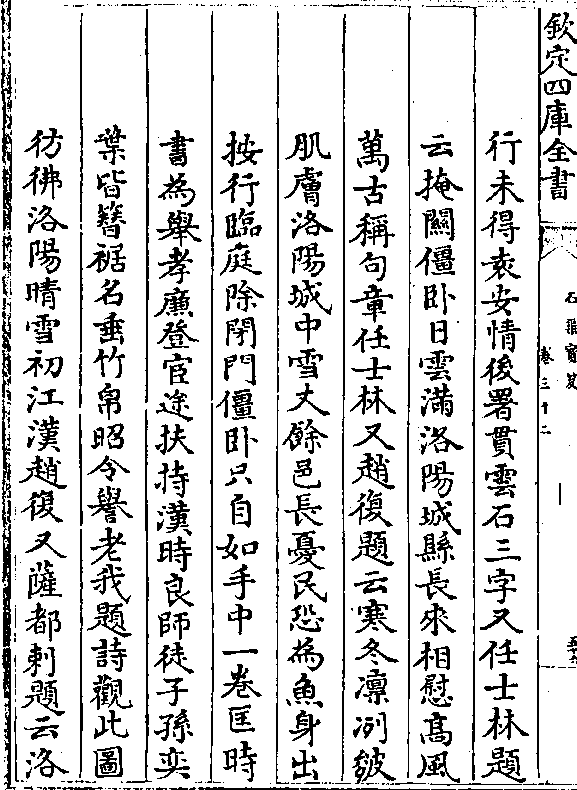 欽定四庫全書
石渠寶笈
卷三十二
行未得袁安情後署貫雲石三字又任士林題
云掩關僵卧日雲滿洛陽城縣長來相慰高風
萬古稱句章任士林又趙復題云寒冬凛冽皴
肌膚洛陽城中雪丈餘邑長憂民恐為魚身出
按行臨庭除閉門僵卧只自如手中一卷匡時
書為舉孝廉登宦途扶持漢時良師徒子孫奕
葉皆簪裾名垂竹帛昭令譽老我題詩觀此圖
彷彿洛陽晴雪初江漢趙復又薩都剌題云洛